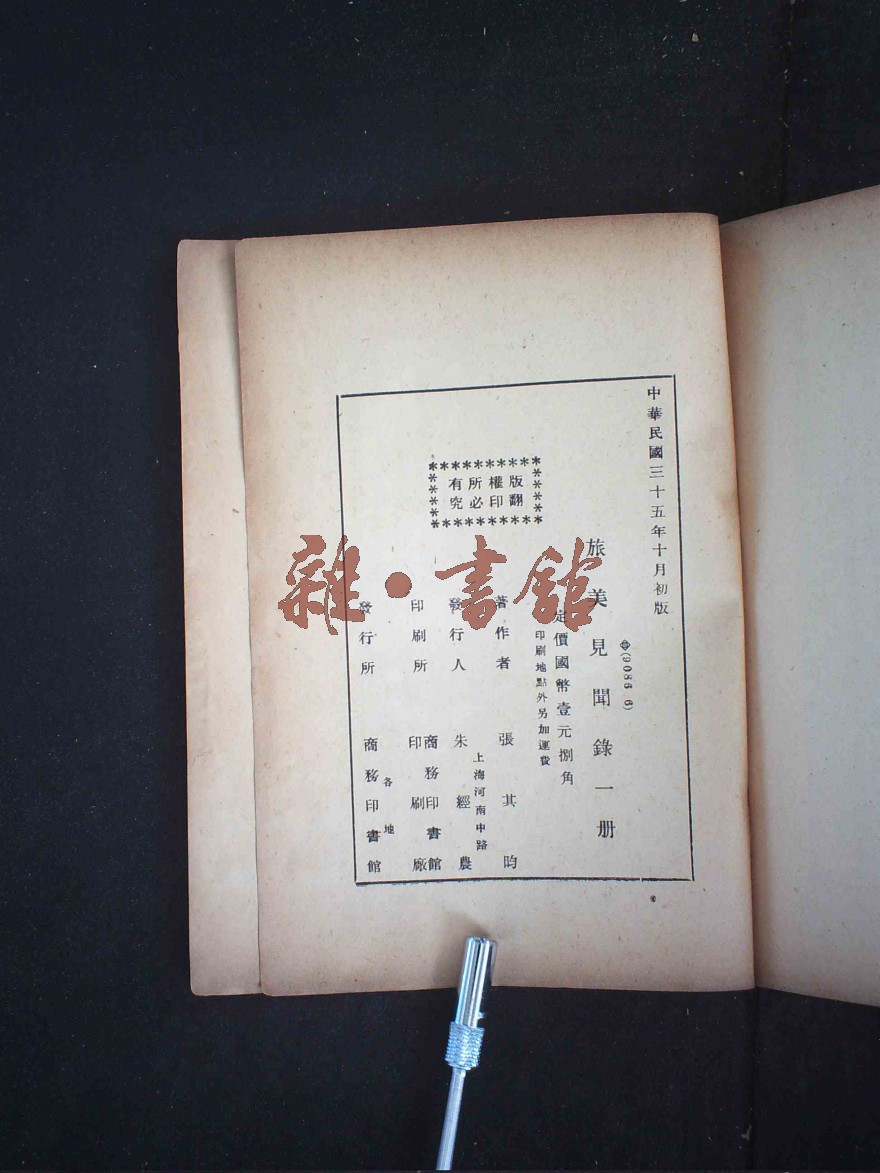 中華民國三十五年十月初版
(9086 6)
旅美見聞錄一册
定價國幣壹元捌角
印刷地點外另加運費
版權所有
翻印必究
著作者 張其昀
上海河南中路
發行人 朱經農
印刷所 商務印書館
印刷廠
發行所 商務印書館
各地
雜·書館